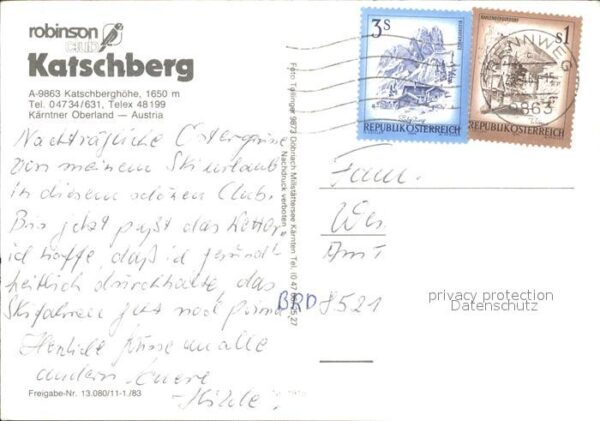 robinson
CLUB
Katschberg
A-9863 Katschberghöhe, 1650 m
Tel. 04734/631, Telex 48199
Kärntner Oberland — Austria
Nachträgliche Ostergrüsse
von meinem Skiurlaub
in diesem schönen Club.
Bis jetzt paßt das Wetter,
ich hoffe daß ich gesund-
heitlich durchhalte, das
Skifahren geht noch prima.
Herzliche Grüsse an alle
andern Eure
Hilde
Freigabe-Nr. 13.080/11-1./83
Foto Tollinger 9873 Döbriach Millstättersee Kärnten Tel. (0 42
Nachdruck verboten
3S
REPUBLIK ÖSTERREICH
S1
REPUBLIK ÖSTERREICH
RENNWEG
9863
Fam.
BRD 8521
privacy protection
Datenschutz